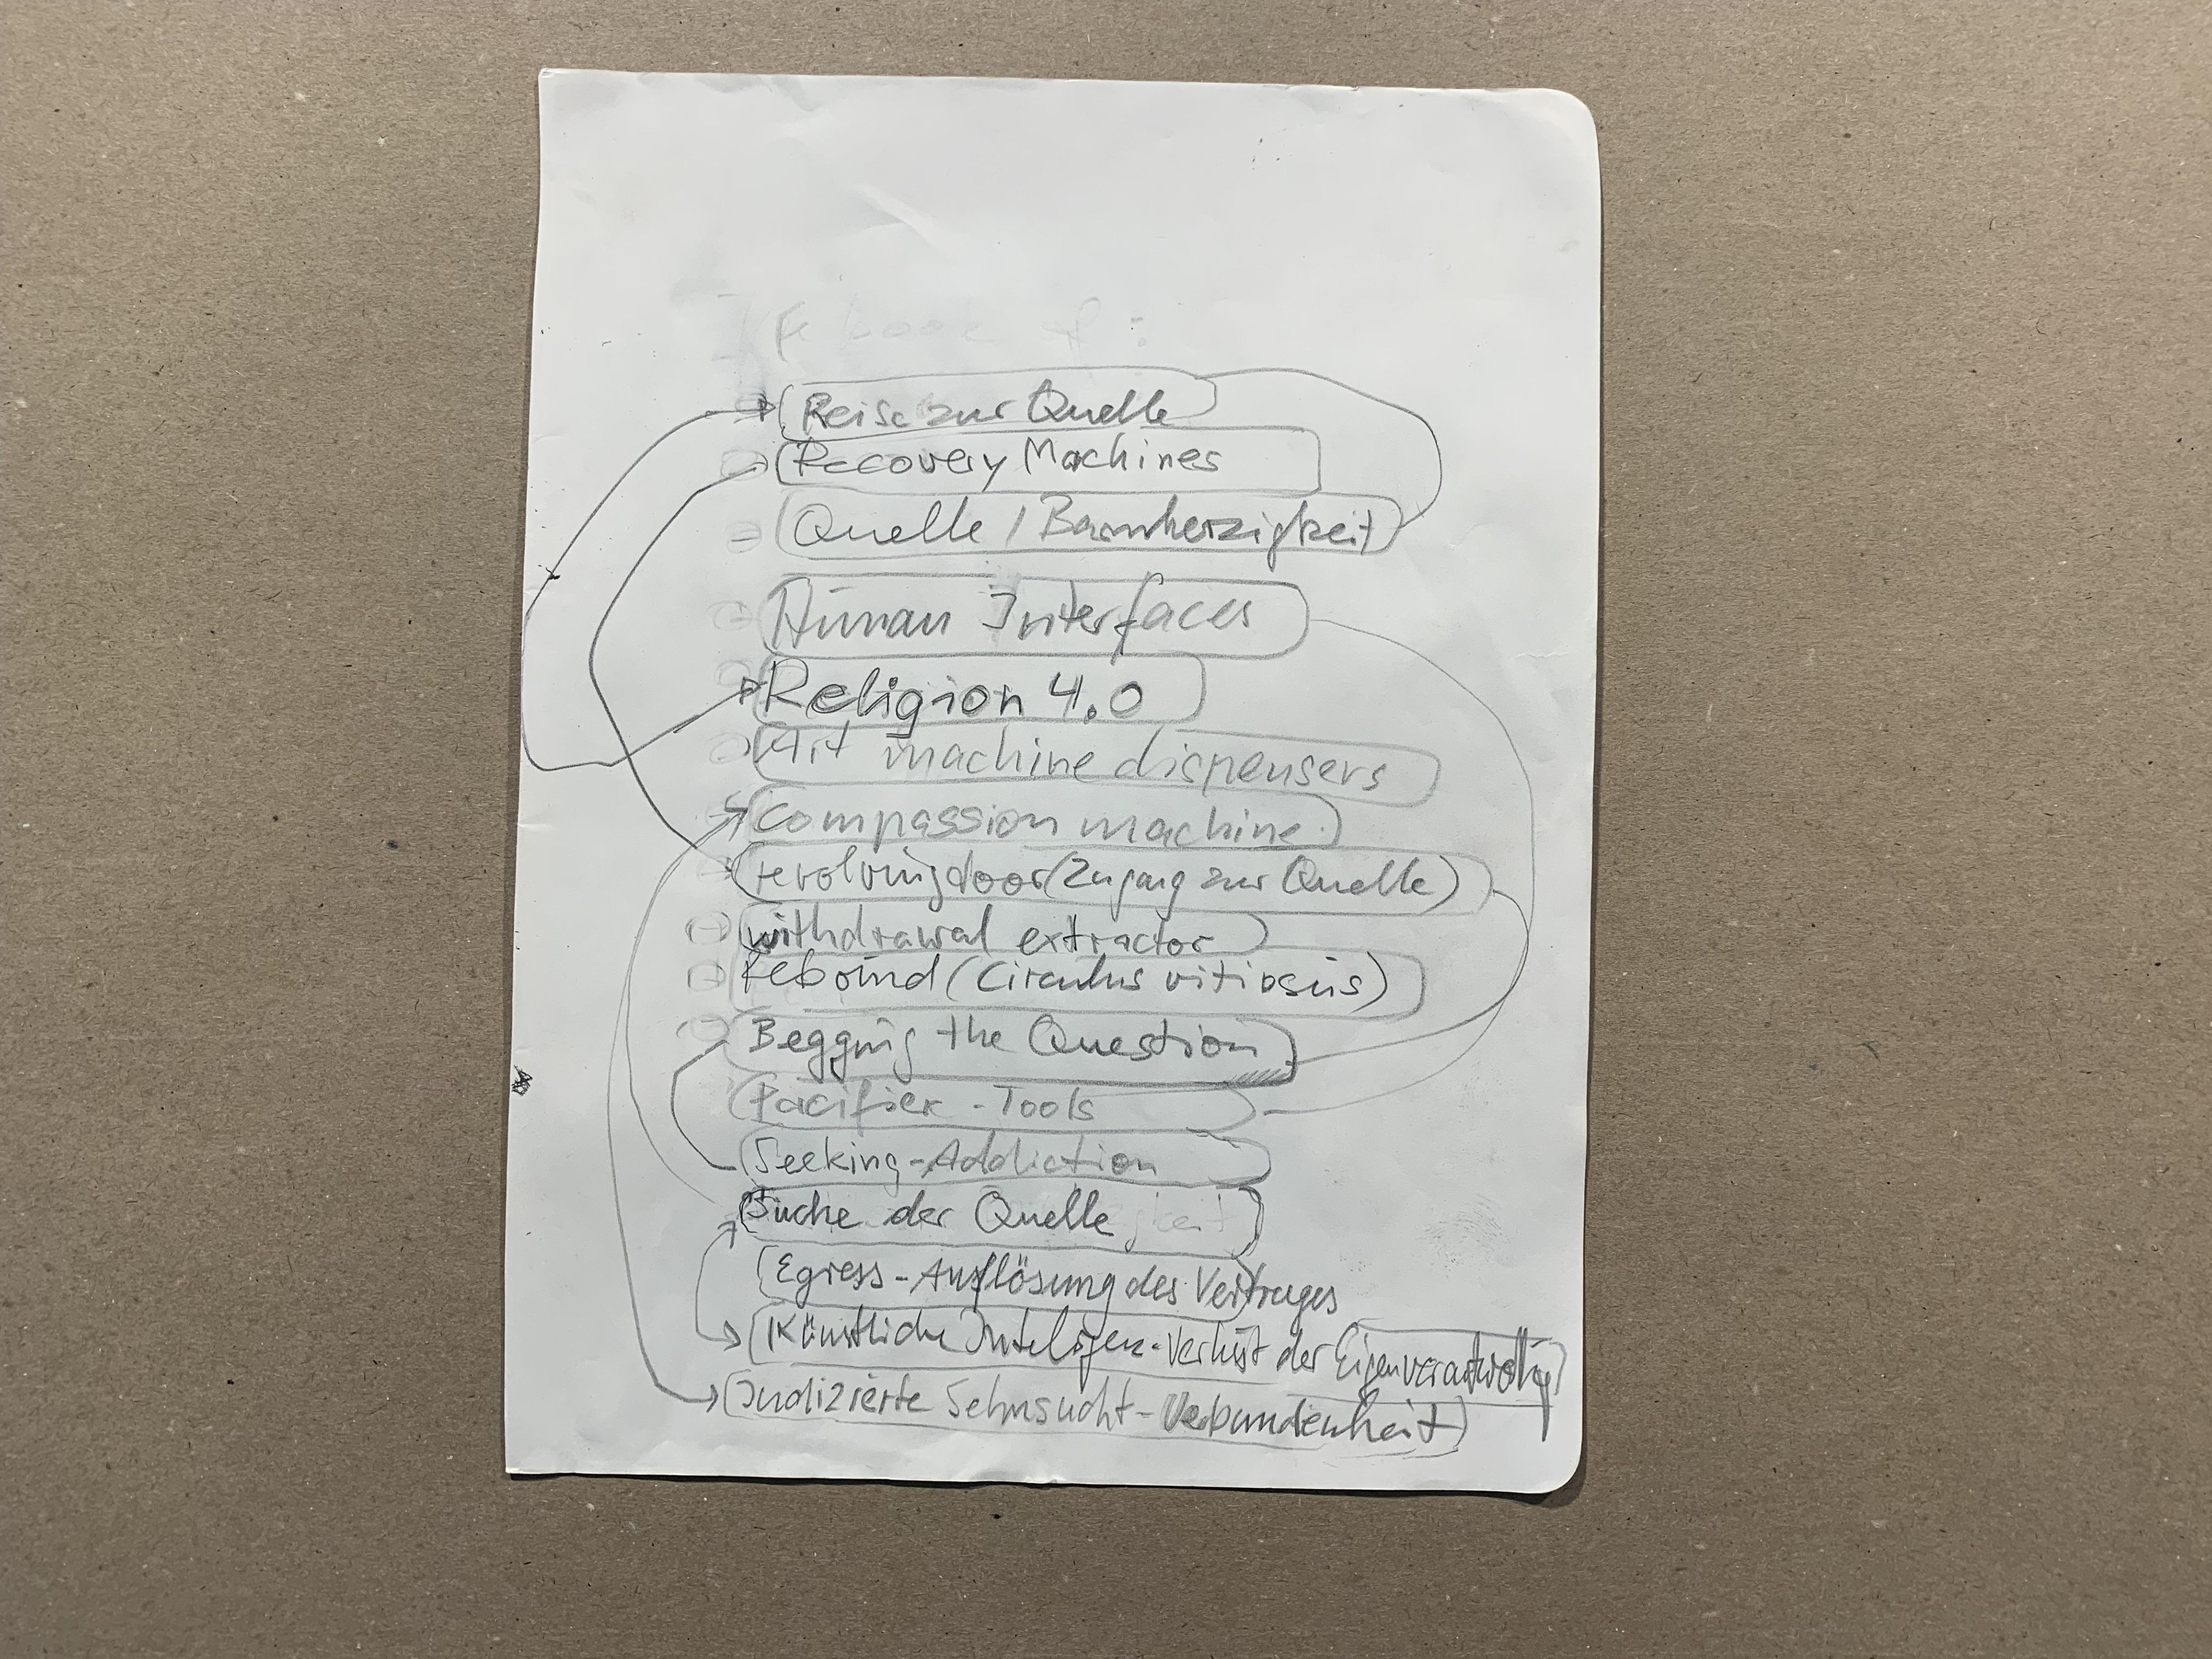 The book of :
Reise zur Quelle
Recovery Machines
Quelle / Barmherzigkeit
Human Interfaces
Religion 4.0
Art machine dispensers
Compassion machine
revolvingdoor (Zugang zur Quelle)
withdrawal extractor
Rebound (Circulus vitiosus)
Begging the Question
Pacifier - Tools
Seeking-Addiction
Suche der Quelle
Egress - Auflösung des Vertrages
Künstliche Inteligenz - Verlust der Eigenverantwortung
Indizierte Sehnsucht - Verbundenheit